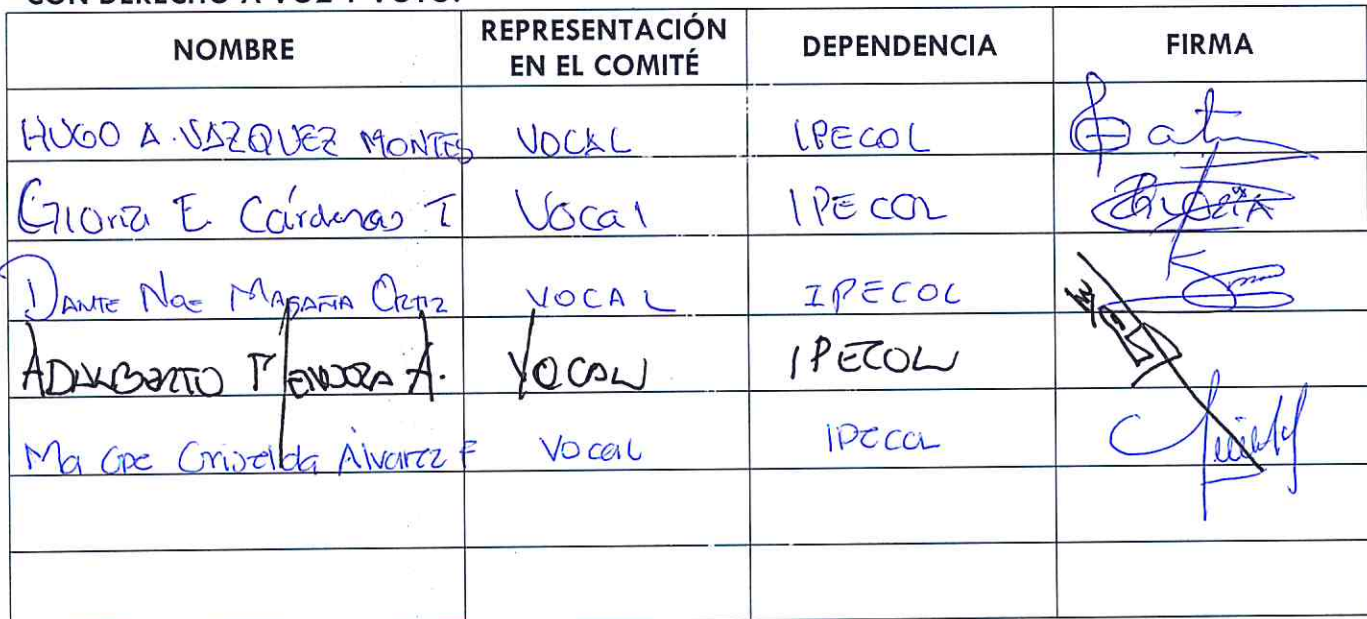 CON DERECHO A VOZ Y VOTO:
NOMBRE REPRESENTACIÓN EN EL COMITÉ DEPENDENCIA FIRMA
HUGO A. VAZQUEZ MONTES VOCAL IPECOL
Gloria E Cárdenas T Vocal IPECOL
DANTE Noe MAGAÑA ORTIZ VOCAL IPECOL
ADALBERTO MENDOZA A. VOCAL IPECOL
Ma Gpe Griselda Álvarez F Vocal IPECOL